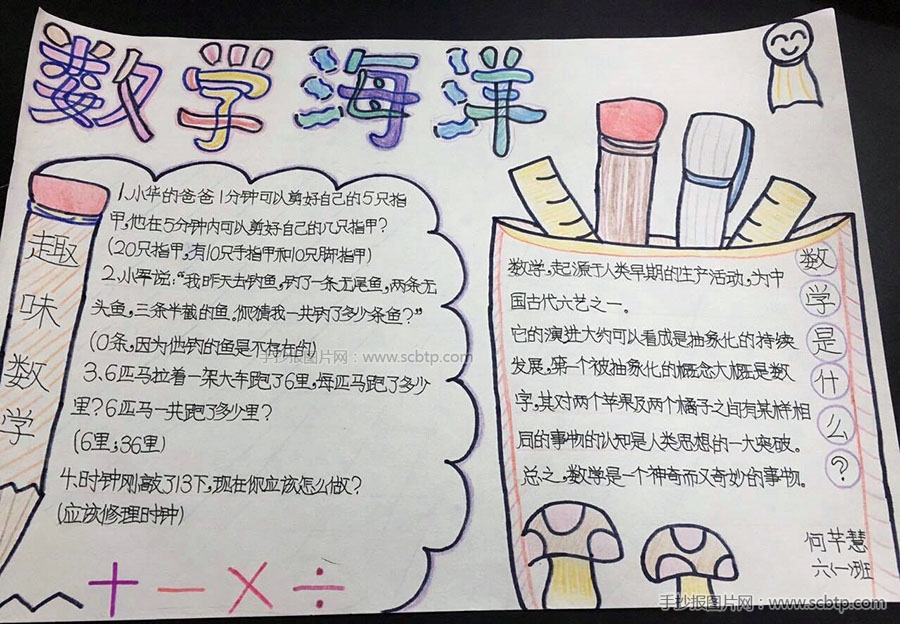 数学海洋
趣味数学
1.小华的爸爸1分钟可以剪好自己的5只指
甲,他在5分钟内可以剪好自己的几只指甲?
(20只指甲,有10只手指甲和10只脚指甲)
2.小军说:“我昨天去钓鱼,钓了一条无尾鱼,两条无
头鱼,三条半截的鱼。你猜我一共钓了多少条鱼?”
(0条,因为他钓的鱼是不存在的)
手抄报图片网:www.scbtp.com
3.6匹马拉着一架大车跑了6里,每匹马跑了多少
里?6匹马一共跑了多少里?
(6里;36里)
4.时钟刚敲了13下,现在你应该怎么做?
(应该修理时钟)
+ − × ÷
数学是什么?
数学,起源于人类早期的生产活动,为中
国古代六艺之一。
它的演进大约可以看成是抽象化的持续
发展,第一个被抽象化的概念大概是数
字,其对两个苹果及两个橘子之间有某样相
同的事物的认知是人类思想的一大突破。
总之,数学是一个神奇而又奇妙的事物。
何芊慧
六(一)班
手抄报图片网:www.scbtp.com